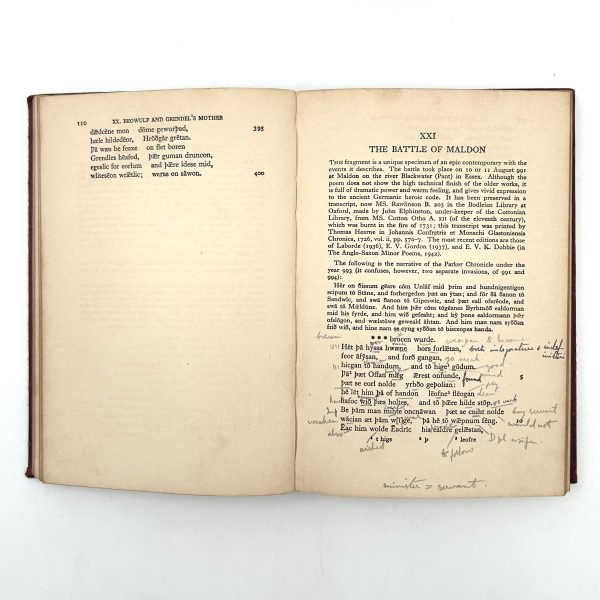 110 XX. BEOWULF AND GRENDEL'S MOTHER
dǣdcēne mon dōme gewurþad, 395
hæle hildedēor, Hrōðgār grētan.
Þā wæs be feaxe on flet boren
Grendles hēafod, þǣr guman druncon,
egeslic for eorlum and þǣre idese mid,
wlitesēon wrǣtlic; weras on sāwon. 400
XXI
THE BATTLE OF MALDON
THIS fragment is a unique specimen of an epic contemporary with the
events it describes. The battle took place on 10 or 11 August 991
at Maldon on the river Blackwater (Pant) in Essex. Although the
poem does not show the high technical finish of the older works, it
is full of dramatic power and warm feeling, and gives vivid expression
to the ancient Germanic heroic code. It has been preserved in a
transcript, now MS. Rawlinson B. 203 in the Bodleian Library at
Oxford, made by John Elphinston, under-keeper of the Cottonian
Library, from MS. Cotton Otho A. XII (of the eleventh century),
which was burnt in the fire of 1731; this transcript was printed by
Thomas Hearne in Johannis Confratris et Monachi Glastoniensis
Chronica, 1726, vol. ii, pp. 570-7. The most recent editions are those
of Laborde (1936), E. V. Gordon (1937), and E. V. K. Dobbie (in
The Anglo-Saxon Minor Poems, 1942).
The following is the narrative of the Parker Chronicle under the
year 993 (it confuses, however, two separate invasions, of 991 and
994):
Hēr on ðissum gēare cōm Unlāf mid þrim and hundnigentigon
scipum tō Stāne, and forhergedon þæt on ȳtan; and fōr ðā ðanon tō
Sandwīc, and swā ðanon tō Gipeswīc, and þæt eall oferēode, and
swā tō Mældūne. And him þǣr cōm tōgēanes Byrhtnōð ealdorman
mid his fyrde, and him wið gefeaht; and hȳ þone ealdormann þǣr
ofslōgon, and wælstōwe geweald āhtan. And him man nam syððan
frið wið, and hine nam se cyng syððan tō bisceopes handa.
••• brocen wurde.
Hēt þā hyssa hwæne hors forlǣtan,
feor āfȳsan, and forð gangan,
hicgan tō handum, and tō hige¹ gōdum.
Þā² þæt Offan mǣg ǣrest onfunde, found 5
þæt se eorl nolde yrhðo geþolian:
hē lēt him þā of handon lēofne³ flēogan dear
hafoc wið þæs holtes, and tō þǣre hilde stōp.
Be þām man mihte oncnāwan þæt se cniht nolde boy servant
wācian æt þām wīge, þā hē tō wǣpnum fēng. would not 10
Ēac him wolde Ēadrīc his ealdre gelǣstan,
also
¹ t hige ² þ ³ leofre
wished to follow
minister = servant.